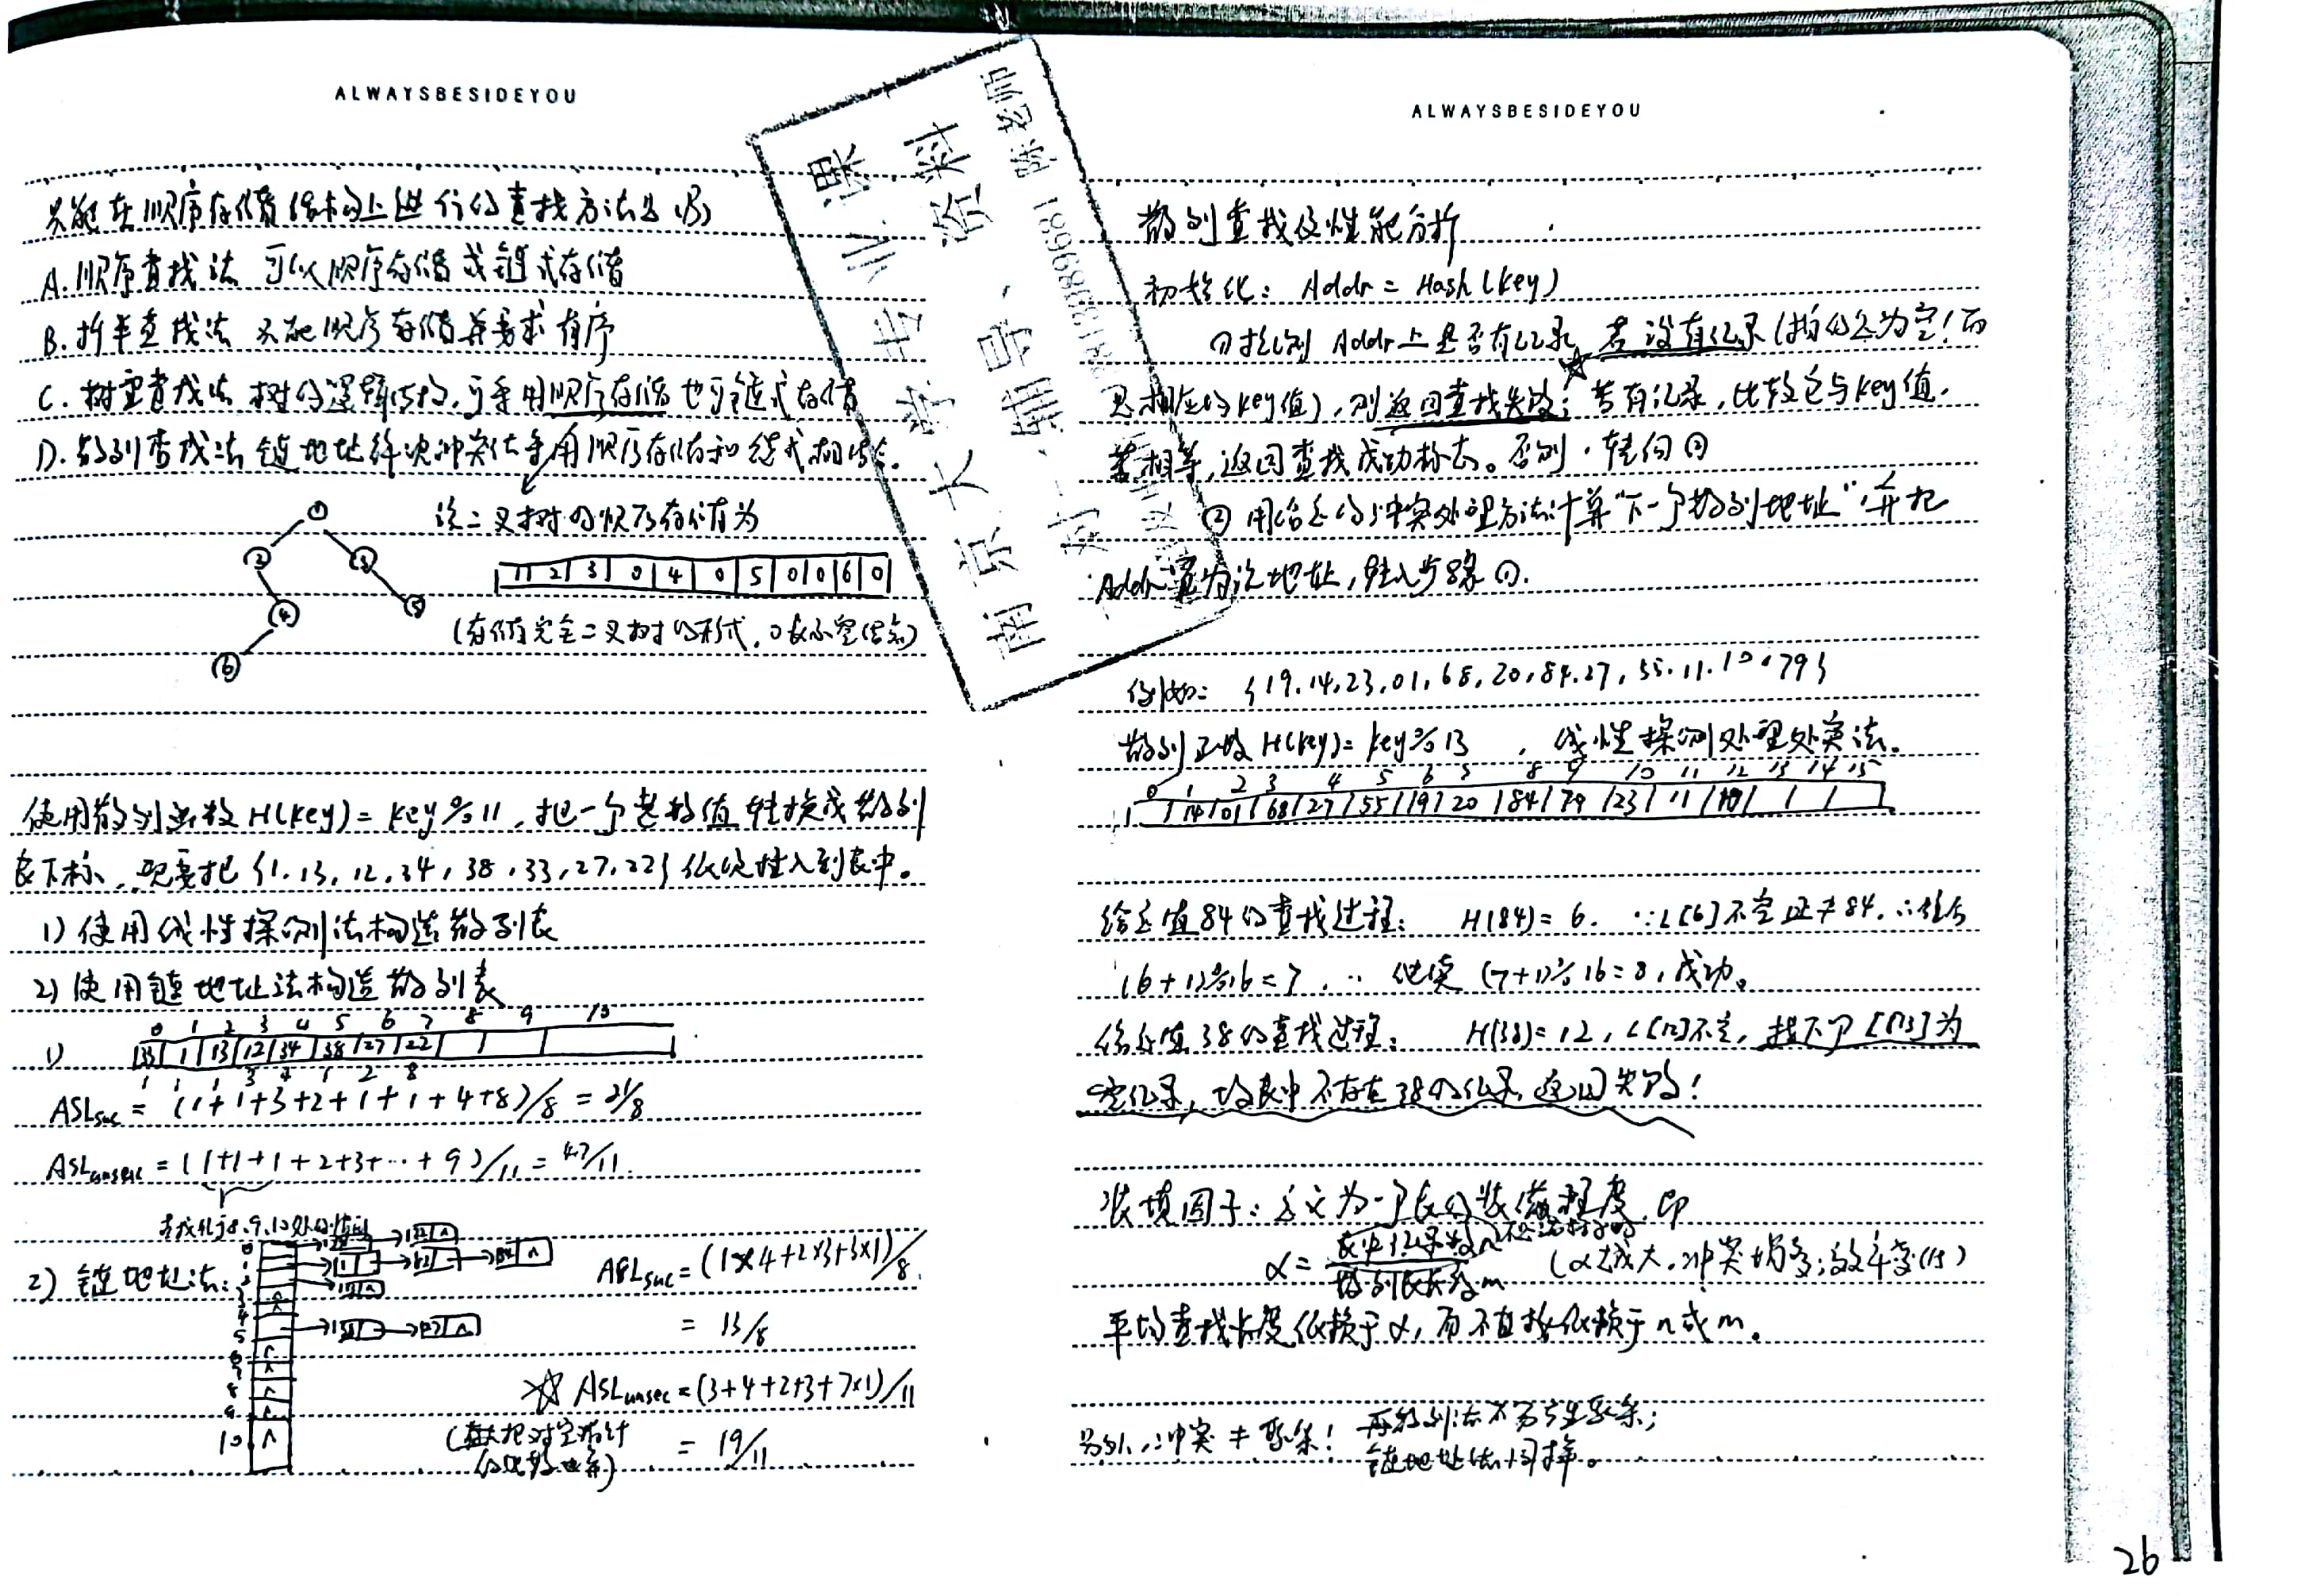 ALWAYSBESIDEYOU
只能在顺序存储结构上进行的查找方法是(B)
A.顺序查找法 可以顺序存储或链式存储
B.折半查找法 只能顺序存储并要求有序
C.树型查找法 树的逻辑结构,可采用顺序存储也可链式存储
D.散列查找法 链地址解决冲突法采用顺序存储和链式相结合.
该二叉树的顺序存储为
1 2 3 0 4 0 5 0 0 6 0
(存储完全二叉树的形式,0表示空结点)
1
2 3
4 5
6
使用散列函数H(key)=key%11,把一个整数值转换成散列
表下标,现要把{1.13,12,34,38,33,27,22}依次插入到表中。
1)使用线性探测法构造散列表
2)使用链地址法构造散列表
0 1 2 3 4 5 6 7 8 9 10
1) 33 1 13 12 34 38 27 22
1 1 1 3 4 1 2 8
ASLsuc = (1+1+3+2+1+1+4+8)/8 = 21/8
ASLunsuc = (1+1+1+2+3+…+9)/11 = 47/11
查找位于8.9.10处的情况
2)链地址法:
0
1
2
3
4
5
6
7
8
9
10
ASLsuc=(1×4+2×3+3×1)/8
= 13/8
☆ ASLunsec=(3+4+2+3+7×1)/11
= 19/11
南京大学专业课
对一辅导、资料
18136896681 陈老师
ALWAYSBESIDEYOU
散列查找及性能分析
初始化: Addr = Hash(key)
①检测Addr上是否有记录,若没有记录(指的是为空!而
是相应的key值),则返回查找失败;若有记录,比较它与key值.
若相等,返回查找成功标志。否则.转向②
②用给定的冲突处理方法计算"下一个散列地址",并把
Addr置为该地址,转入步骤①.
例如: {19.14.23.01,68,20,84.27,55.11.10.79}
散列函数H(key)=key%13 ,线性探测处理冲突法。
0 1 2 3 4 5 6 7 8 9 10 11 12 13 14 15
14 01 68 27 55 19 20 84 79 23 11 10
给定值84的查找过程: H(84)=6. ∵L[6]不空且≠84.∴继续
(6+1)%16=7, ∵ 继续 (7+1)%16=8,成功。
给定值38的查找过程: H(38)=12,L[12]不空,找下个L[13]为
空记录,故表中不存在38的记录,返回失败!
装填因子:定义为一个表的装满程度,即
α= 表中记录数n / 散列表长度m (α越大,冲突越多;效率会低)
平均查找长度依赖于α,而不直接依赖于n或m。
另外,冲突≠聚集! 再散列法不易产生聚集;
链地址法同样。
26